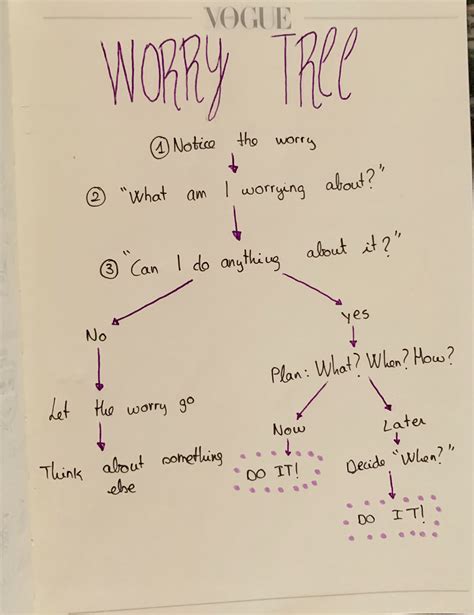 VOGUE
WORRY TREE
① Notice the worry
② "What am I worrying about?"
③ "Can I do anything about it?"
No
yes
Plan: What? When? How?
Let the worry go
Now
Later
Think about something
else
DO IT!
Decide "When?"
DO IT!